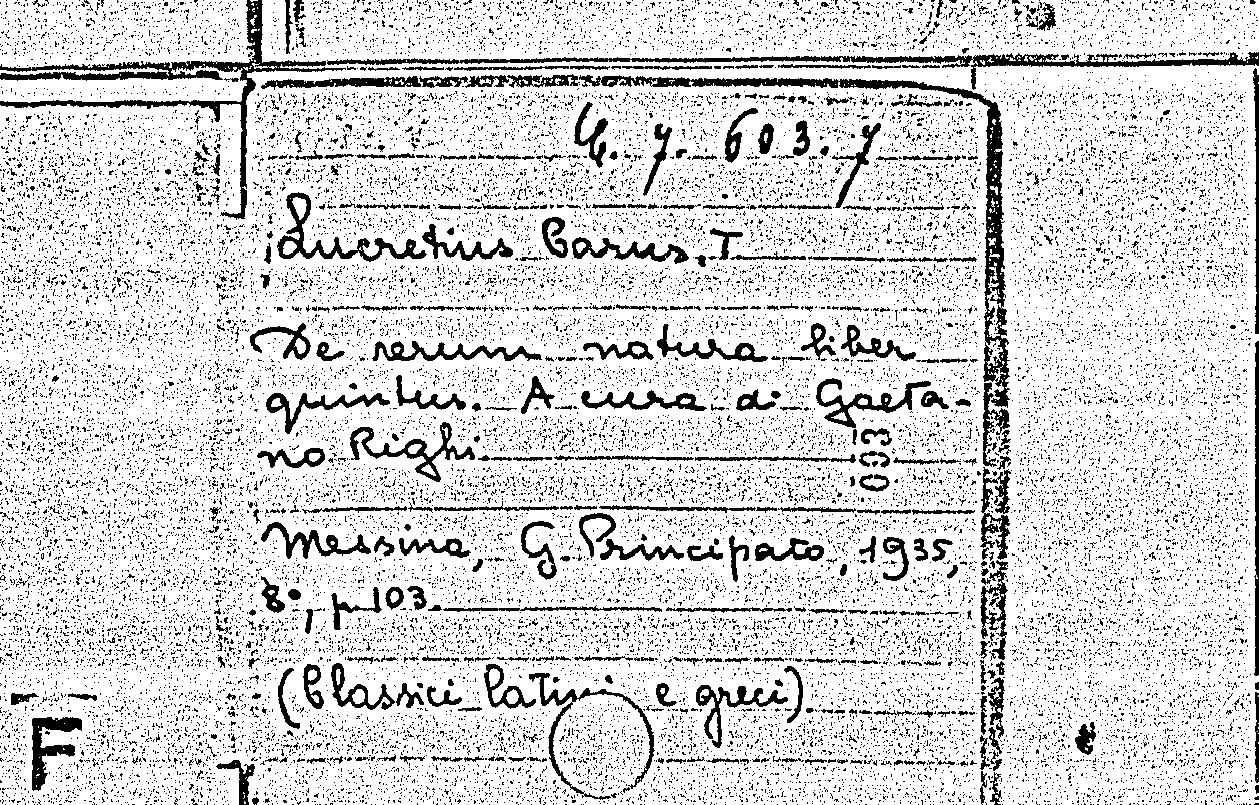 7. 603. 7
Lucretius Carus, T
De rerum natura liber
quintus. A cura di Gaeta-
no Righi
003
Messina, G. Principato, 1935,
8°, p 103.
(Classici latini e greci).
F